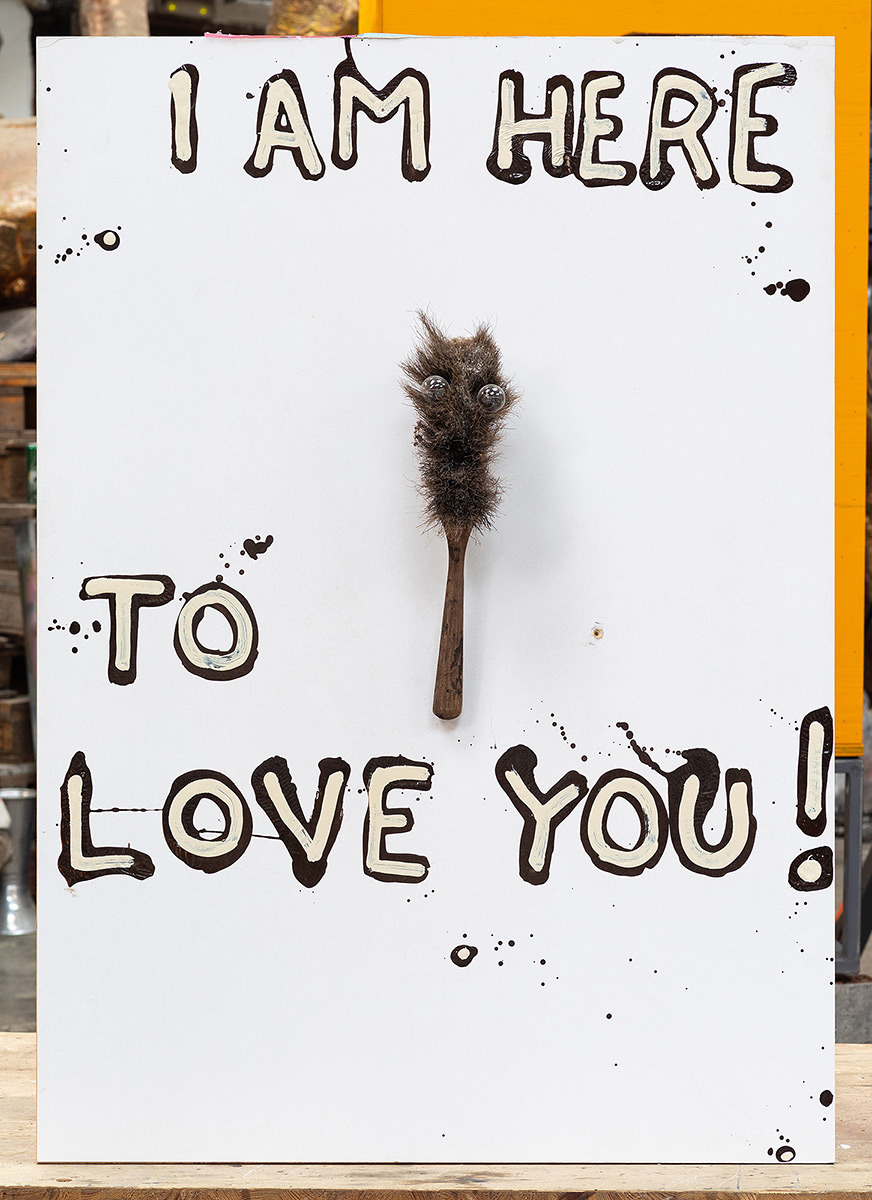 I AM HERE
TO
LOVE YOU!